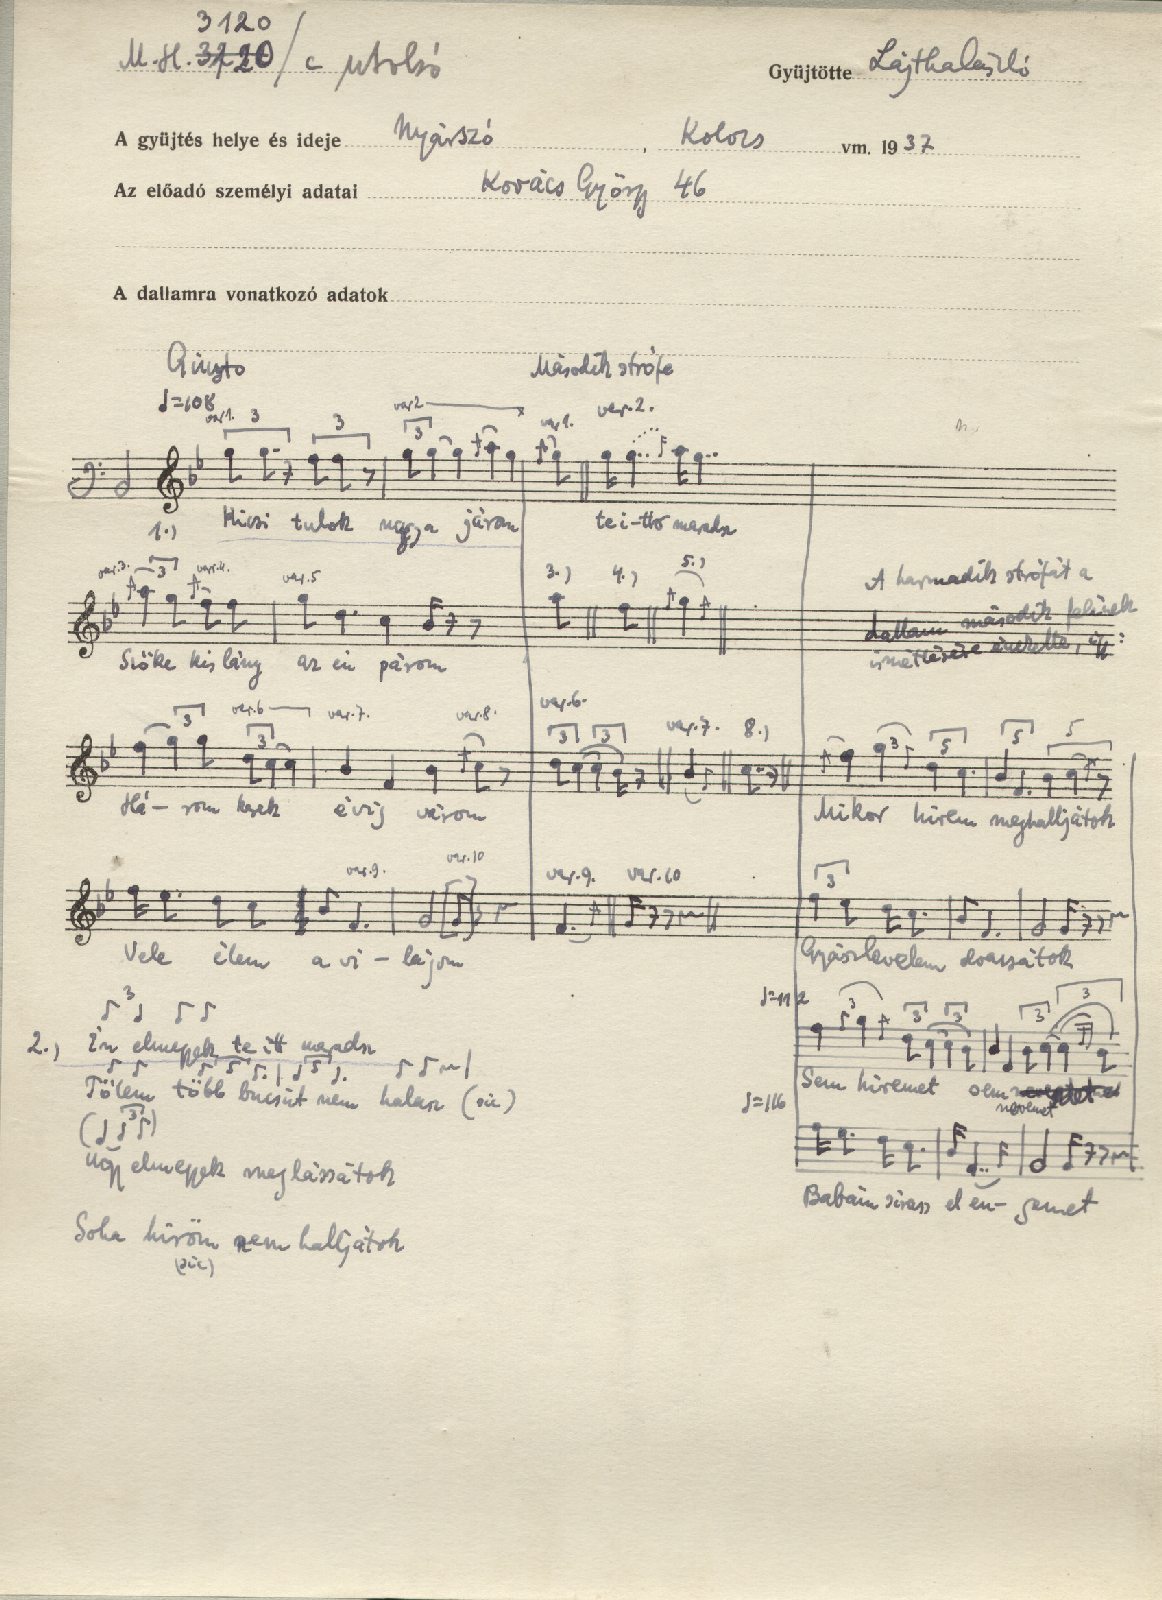 3120
M.H. 3220/c utolsó
Gyüjtötte Lajtha László
A gyüjtés helye és ideje Nyárszó, Kolozs vm. 1937
Az előadó személyi adatai Kovács György 46
A dallamra vonatkozó adatok
Giusto
Második strófa
♩=108
var 1. 3 3 var 2 3 var 1. var. 2.
1.) Kicsi tulok nagy a járom
te i-tt maradsz
var. 3. 3 var. 4. var. 5 3.) 4.) 5.)
A harmadik strófát a
dallam második felének
ismétlésére énekelte, így:
Szőke kis lány az én párom
3 var. 6 3 var. 7. var. 8. var. 6. 3 3 var. 7. 8.) 3 5 5 5
Há - rom kerek évig várom
Mikor hirem meghalljátok
var. 9. var. 10 var. 9. var. 10 3
Vele élem a vi - lágom
Gyászlevelem olvassátok
♩=112
3 3 3 3 3
Sem hiremet sem
nevemet
♩=116
Babám sirass el en- gemet
2.) Én elmegyek te itt maradsz
Tőlem több bucsut nem hallasz (sic)
Úgy elmegyek meglássátok
Soha hiröm nem halljátok
(sic)